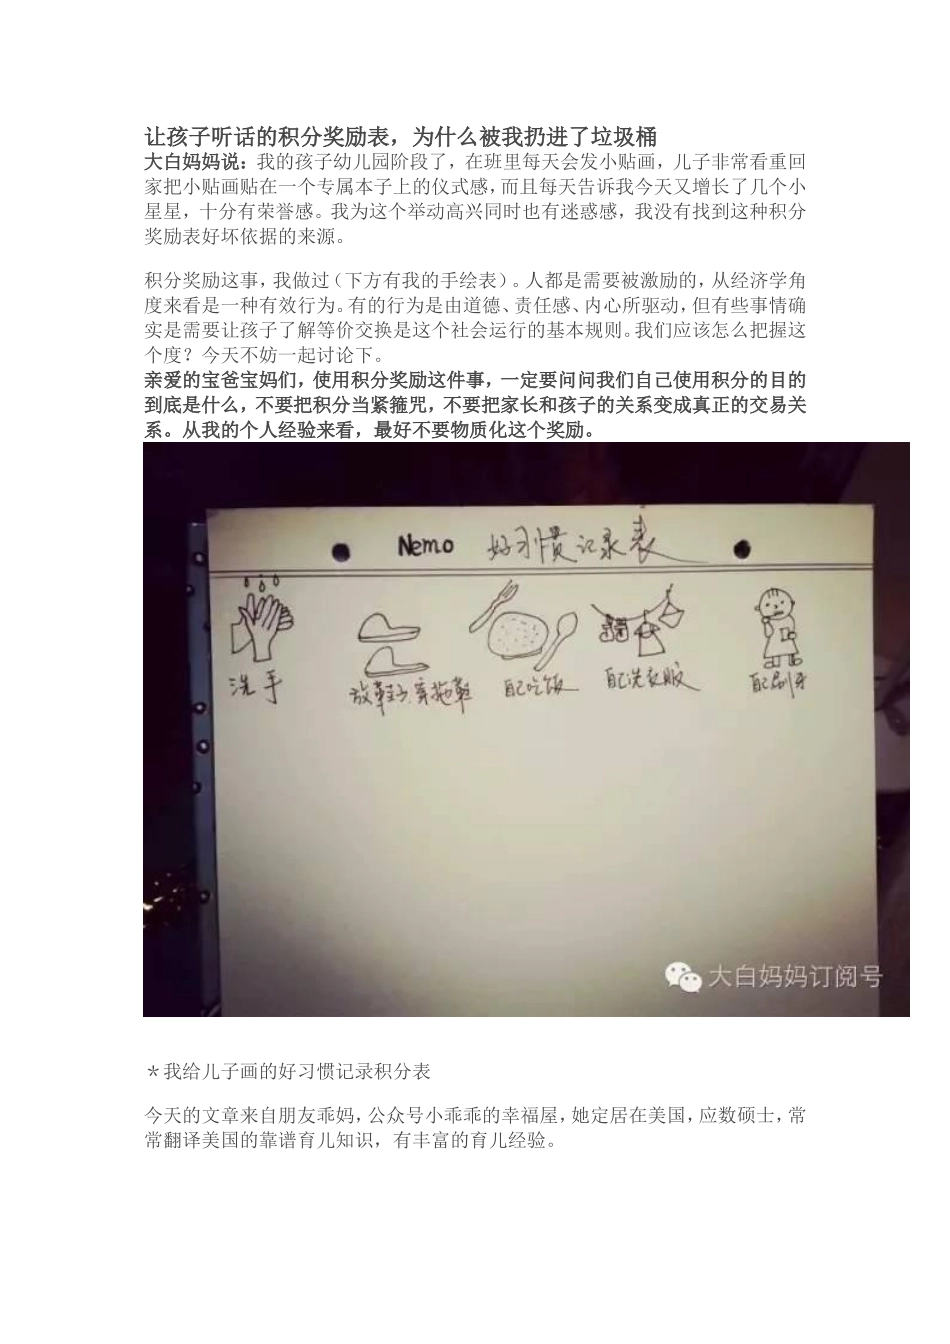 让孩子听话的积分奖励表，为什么被我扔进了垃圾桶
大白妈妈说：我的孩子幼儿园阶段了，在班里每天会发小贴画，儿子非常看重回
家把小贴画贴在一个专属本子上的仪式感，而且每天告诉我今天又增长了几个小
星星，十分有荣誉感。我为这个举动高兴同时也有迷惑感，我没有找到这种积分
奖励表好坏依据的来源。
积分奖励这事，我做过（下方有我的手绘表）。人都是需要被激励的，从经济学角
度来看是一种有效行为。有的行为是由道德、责任感、内心所驱动，但有些事情确
实是需要让孩子了解等价交换是这个社会运行的基本规则。我们应该怎么把握这
个度？今天不妨一起讨论下。
亲爱的宝爸宝妈们，使用积分奖励这件事，一定要问问我们自己使用积分的目的
到底是什么，不要把积分当紧箍咒，不要把家长和孩子的关系变成真正的交易关
系。从我的个人经验来看，最好不要物质化这个奖励。
Nemo 好习惯记录表
洗手 放鞋子.穿拖鞋 自己吃饭 自己洗衣服 自己刷牙
大白妈妈订阅号
＊我给儿子画的好习惯记录积分表
今天的文章来自朋友乖妈，公众号小乖乖的幸福屋，她定居在美国，应数硕士，常
常翻译美国的靠谱育儿知识，有丰富的育儿经验。